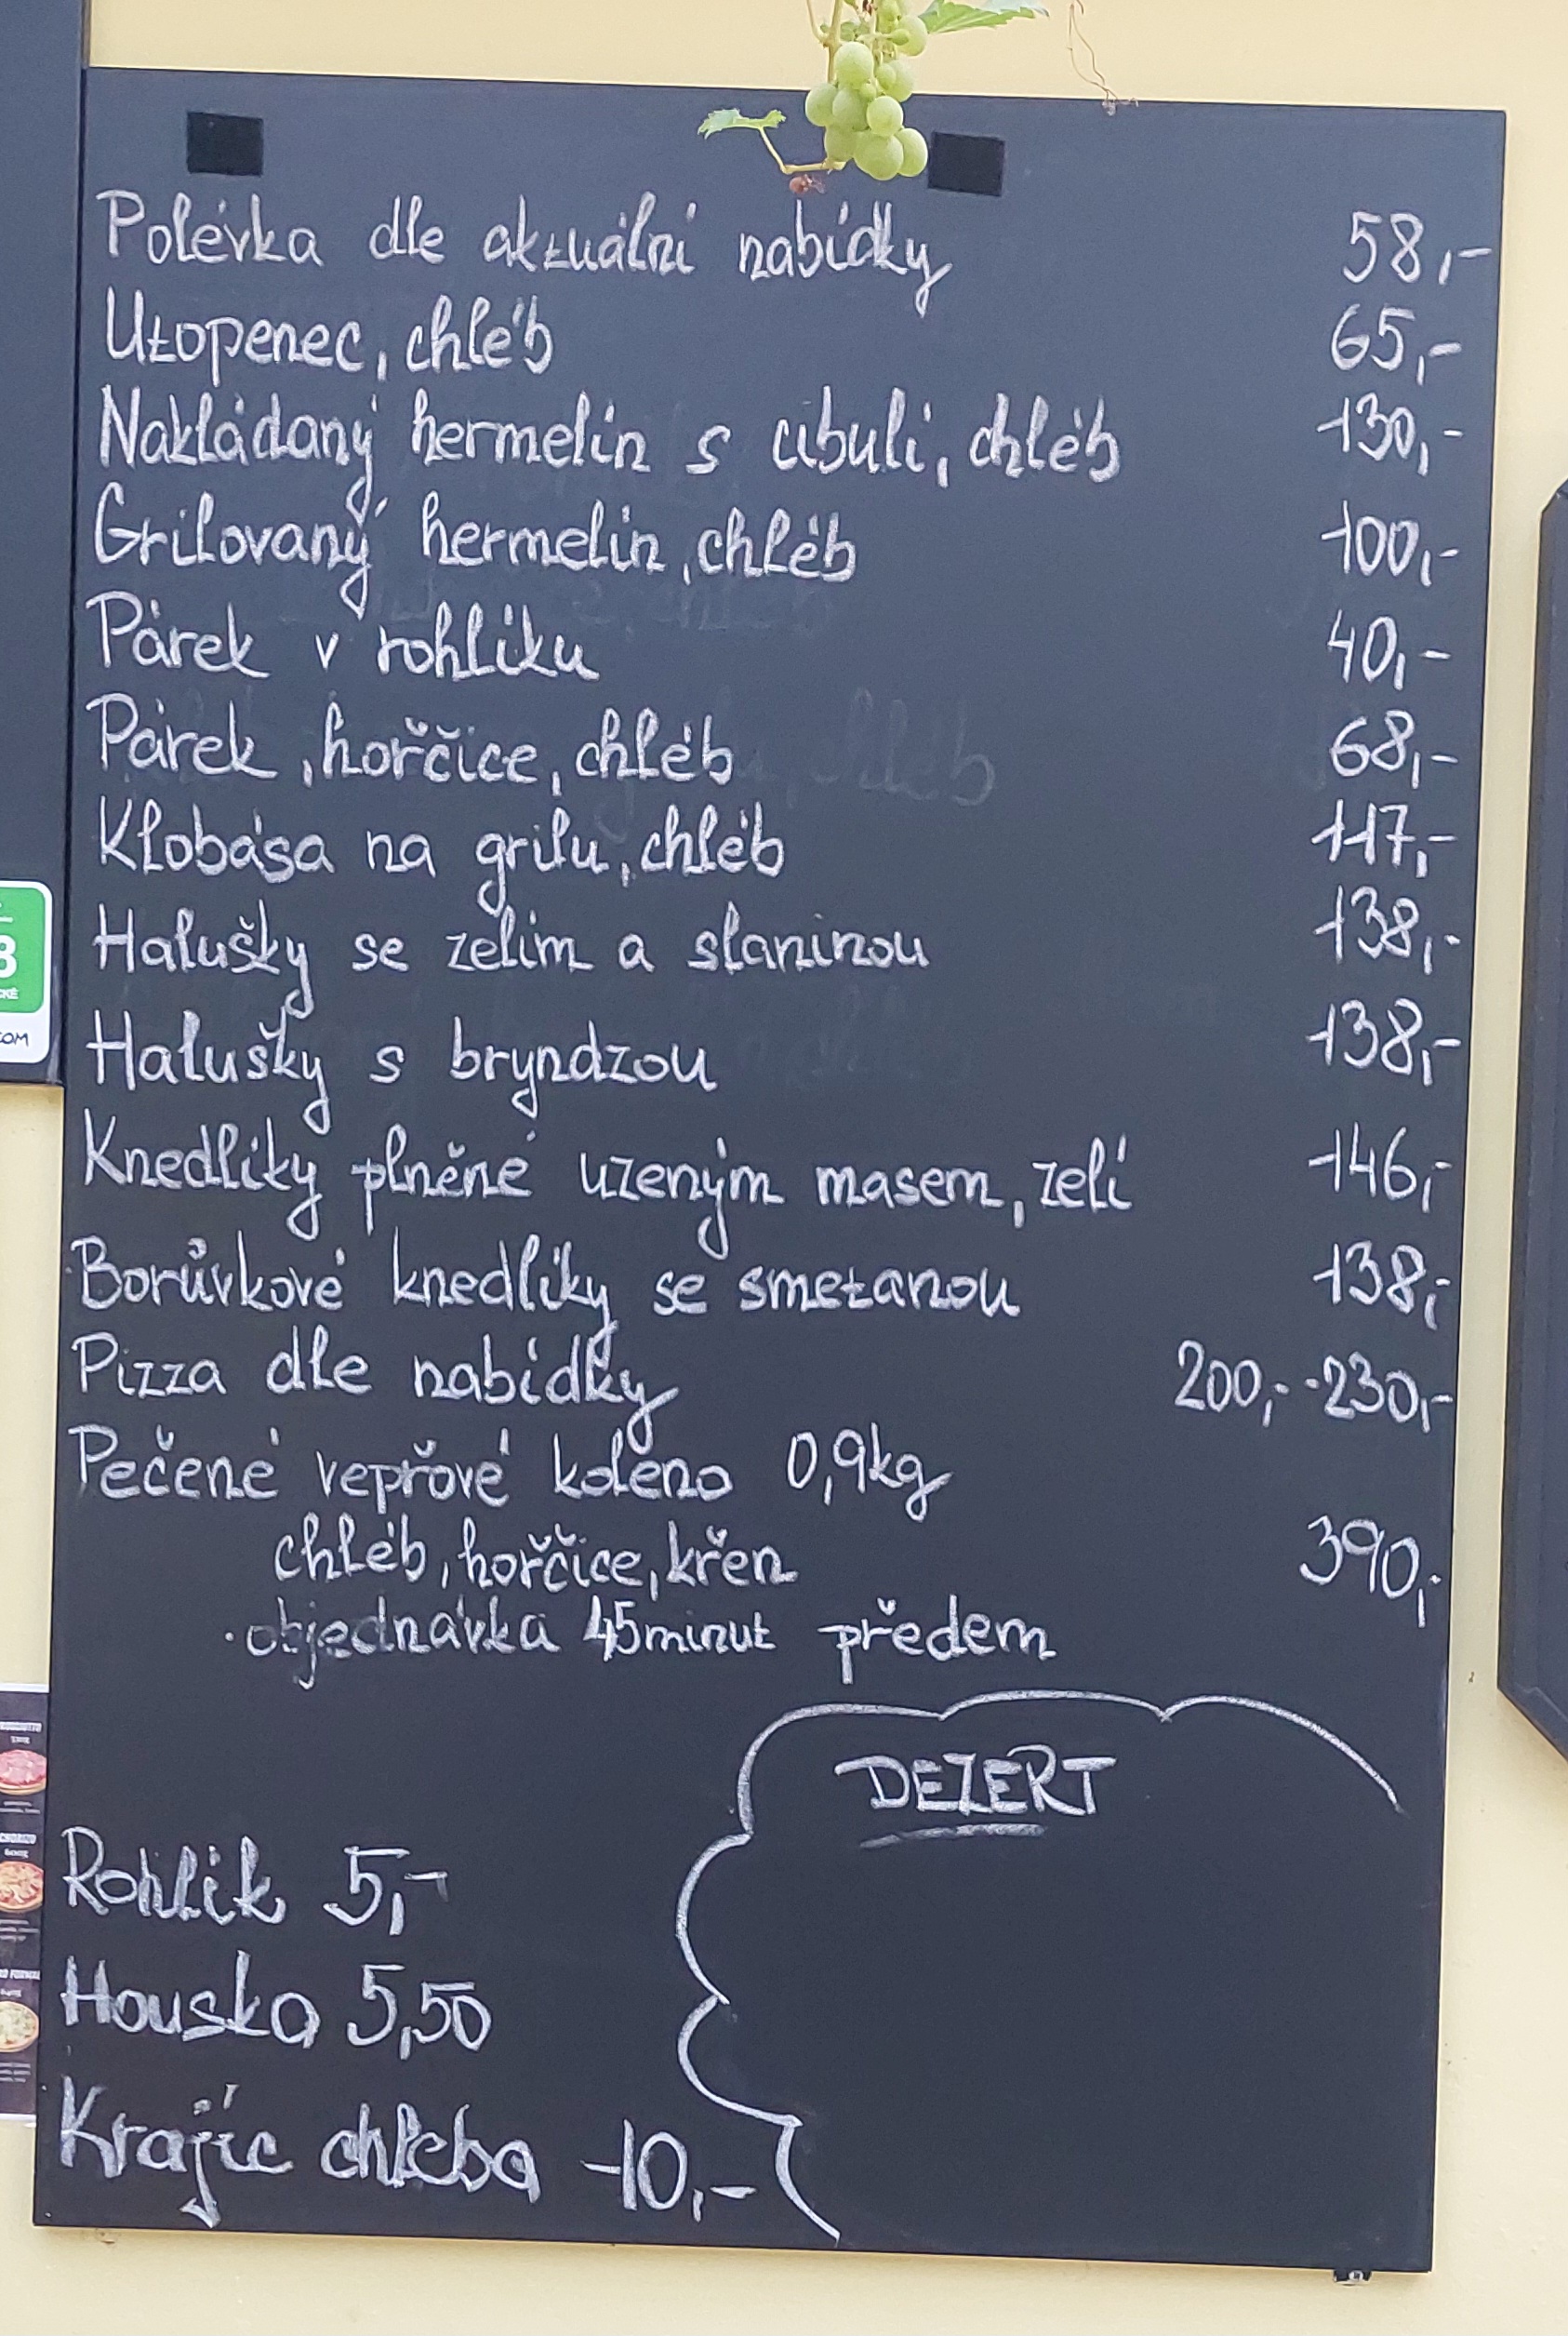 Polévka dle aktuální nabídky 58,-
Utopenec, chléb 65,-
Nakládaný hermelín s cibulí, chléb 130,-
Grilovaný hermelín, chléb 100,-
Párek v rohlíku 40,-
Párek, hořčice, chléb 68,-
Klobása na grilu, chléb 117,-
Halušky se zelím a slaninou 138,-
Halušky s bryndzou 138,-
Knedlíky plněné uzeným masem, zelí 146,-
Borůvkové knedlíky se smetanou 138,-
Pizza dle nabídky 200,- -230,-
Pečené vepřové koleno 0,9kg
chléb, hořčice, křen 390,-
·objednávka 45minut předem
DEZERT
Rohlík 5,-
Houska 5,50
Krajíc chleba 10,-